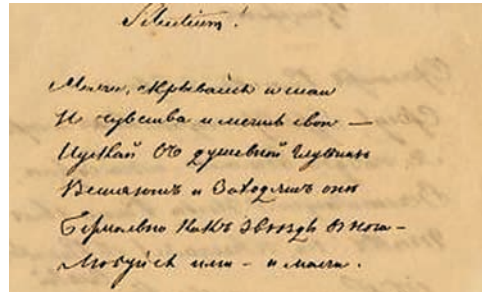 Silentium!
Молчи, скрывайся и таи
И чувства и мечты свои —
Пускай въ душевной глубинѣ
Встаютъ и заходятъ онѣ
Безмолвно какъ звѣзды въ ночи –
Любуйся ими – и молчи.